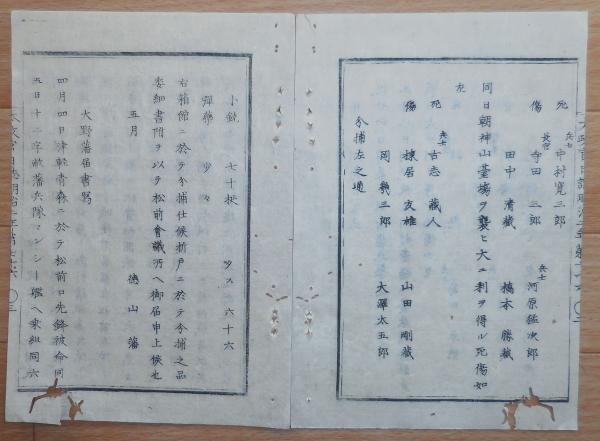 死 兵士 中村寛三郎 兵士 河原猛次郎
傷 兵士 寺田三郎 橋本勝蔵
田中清蔵
同日朝神山臺場ヲ襲ヒ大ニ利ヲ得ル死傷如
左
死 兵士 古志蔵人 山田剛蔵
傷 棟居友雄 大澤太五郎
岡幾三郎
分捕左之通
小銃 七十挺 ツス 六十六
彈藥 少々
右箱館ニ於テ分捕仕候折戸ニ於テ分捕之品
委細書附ヲ以テ松前會議所ヘ御届申上候也
五月 徳山藩
大野藩届書寫
四月四日津軽青森ニ於テ松前口先鋒被命同
五日十二字敝藩兵隊ヤンシー艦ヘ乗組同六